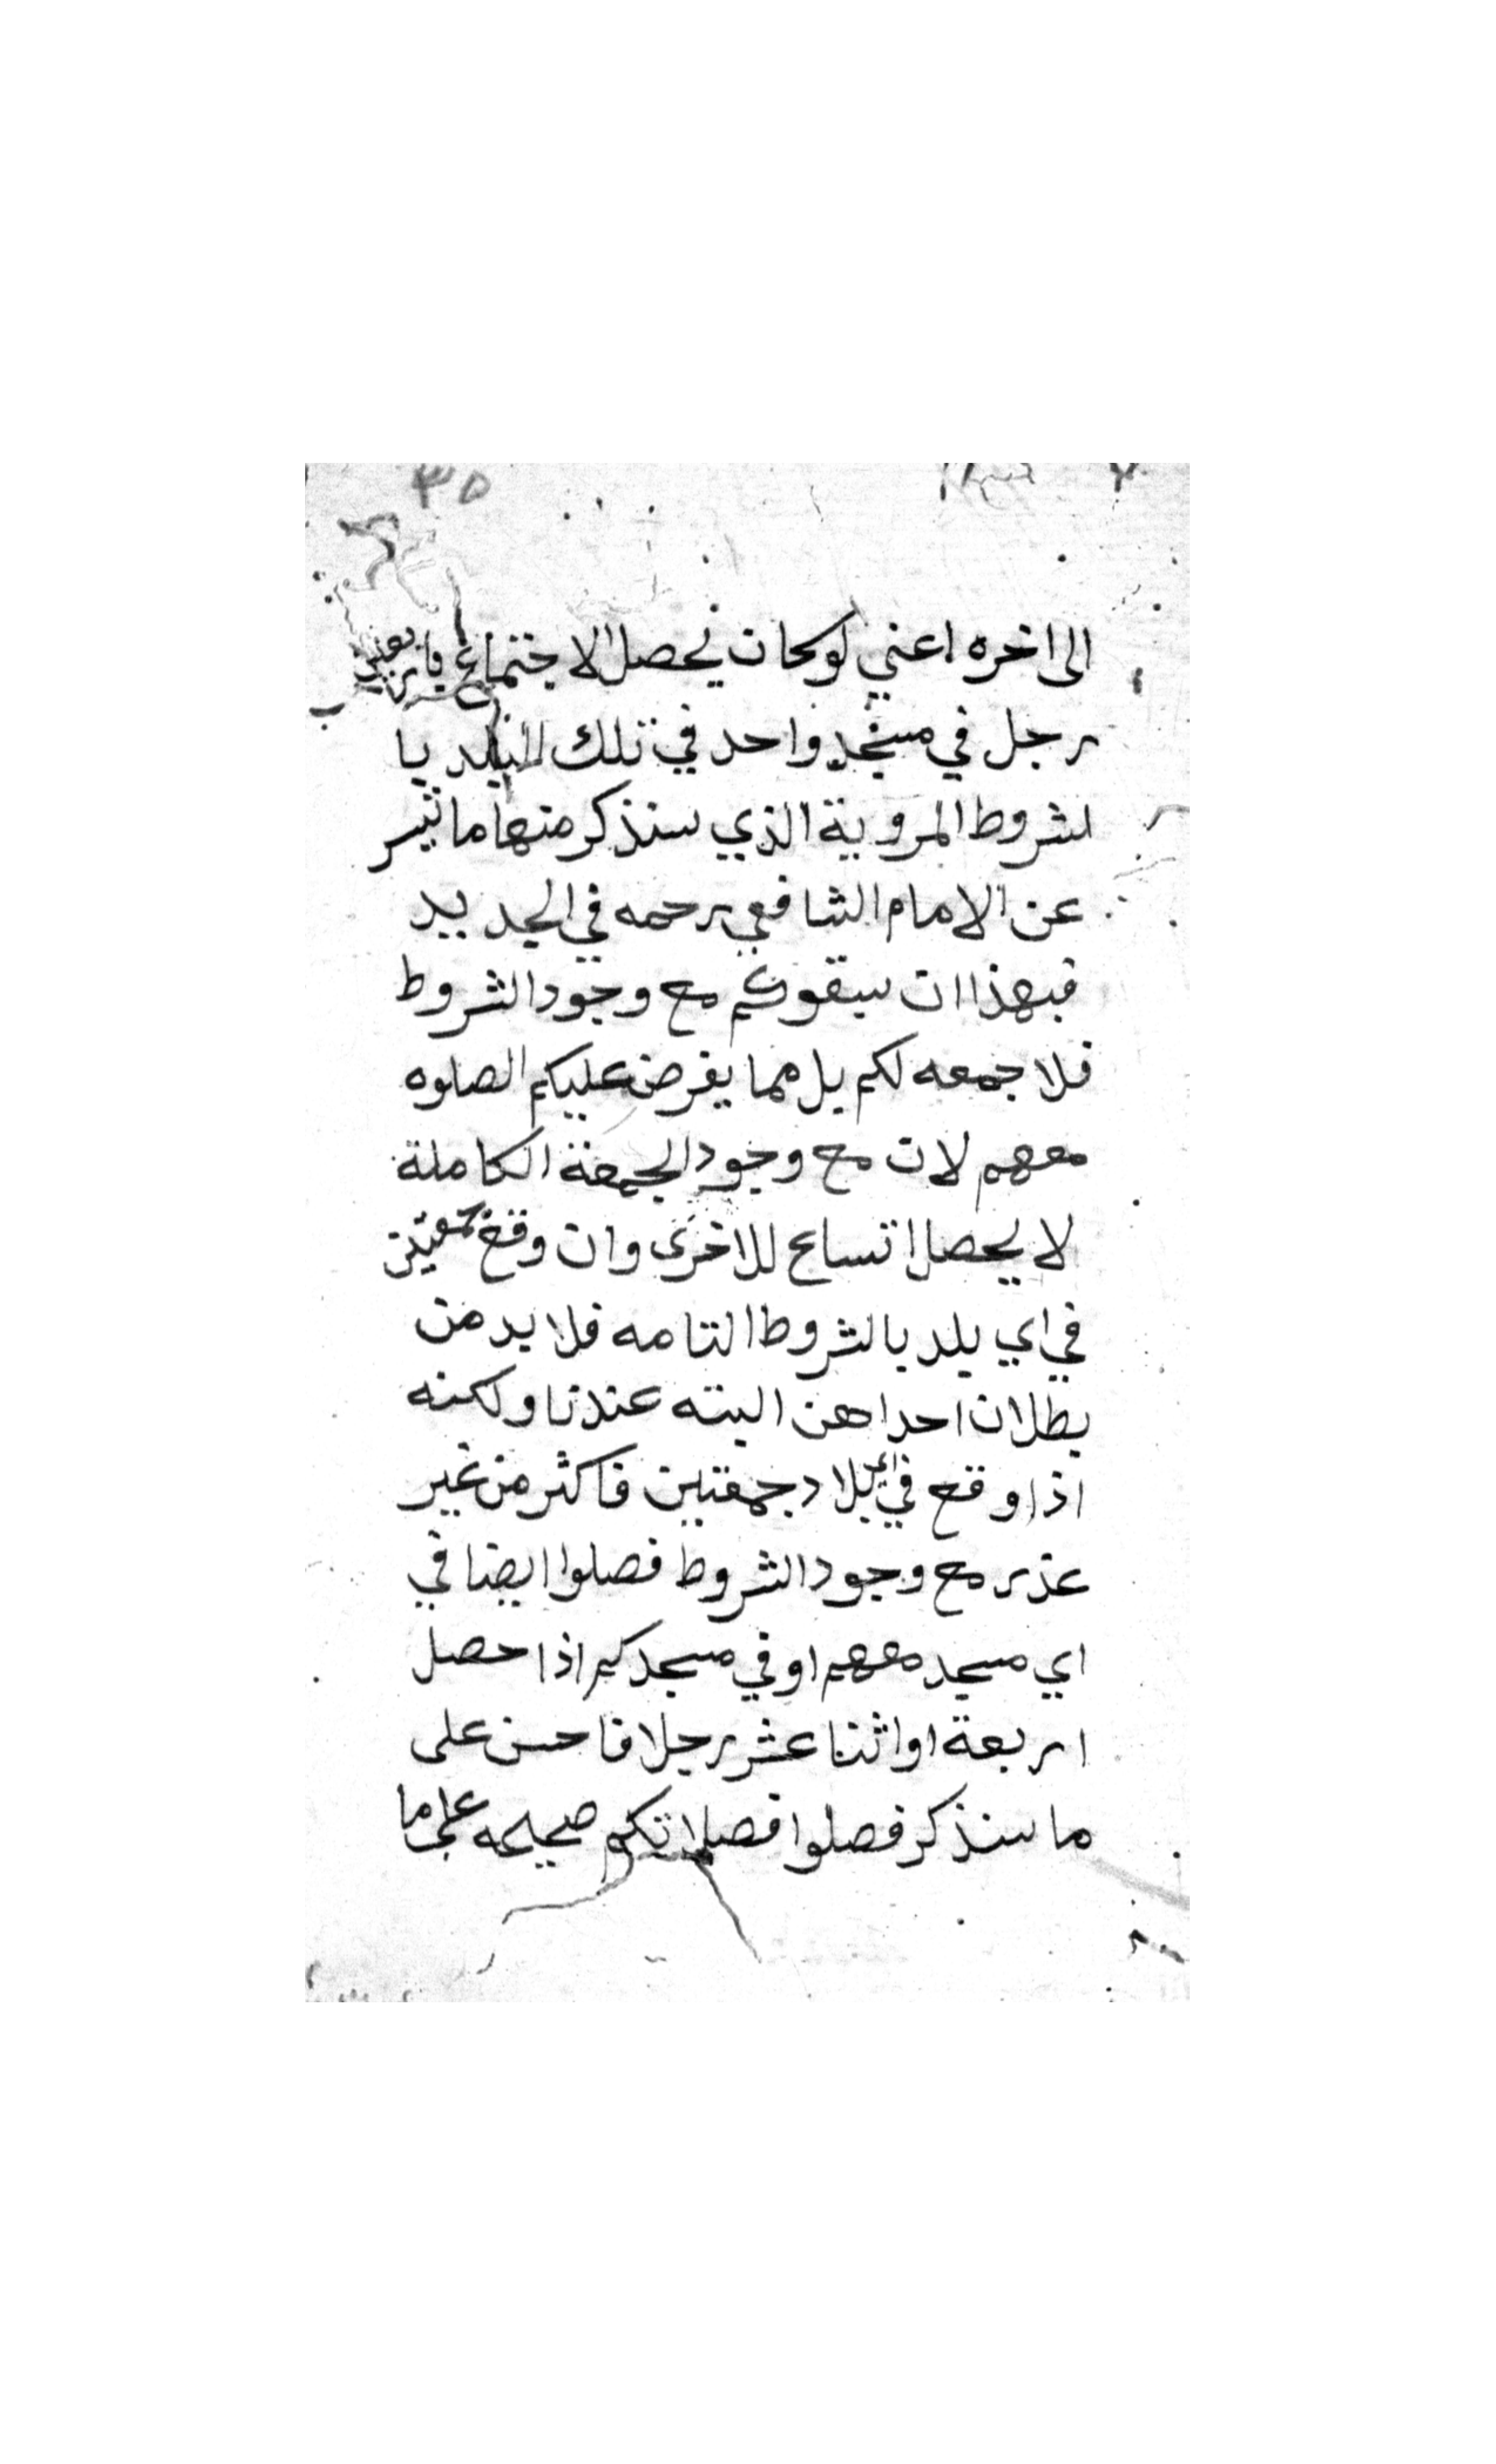 ٣٥
الى اخره اعني لو كان يحصل الاجتماع باربعين
رجل في مسجد واحد في تلك البلد با
لشروط المروية الذي سنذكر منها ما تيسر
عن الامام الشافعي رحمه في الجديد
فبهذا ان سبقوكم مع وجود الشروط
فلا جمعه لكم بل مما يفرض عليكم الصلوه
معهم لان مع وجود الجمعة الكاملة
لا يحصل اتساع للاخرى وان وقع جمعتين
في اي بلد بالشروط التامه فلا بد من
بطلان احداهن البته عندنا ولكنه
اذا وقع في اي بلاد جمعتين فاكثر من غير
عذر مع وجود الشروط فصلوا ايضا في
اي مسجد معهم او في مسجدكم اذا حصل
اربعة او اثنا عشر رجلا فاحسن على
ما سنذكر فصلوا فصلاتكم صحيحه على ما